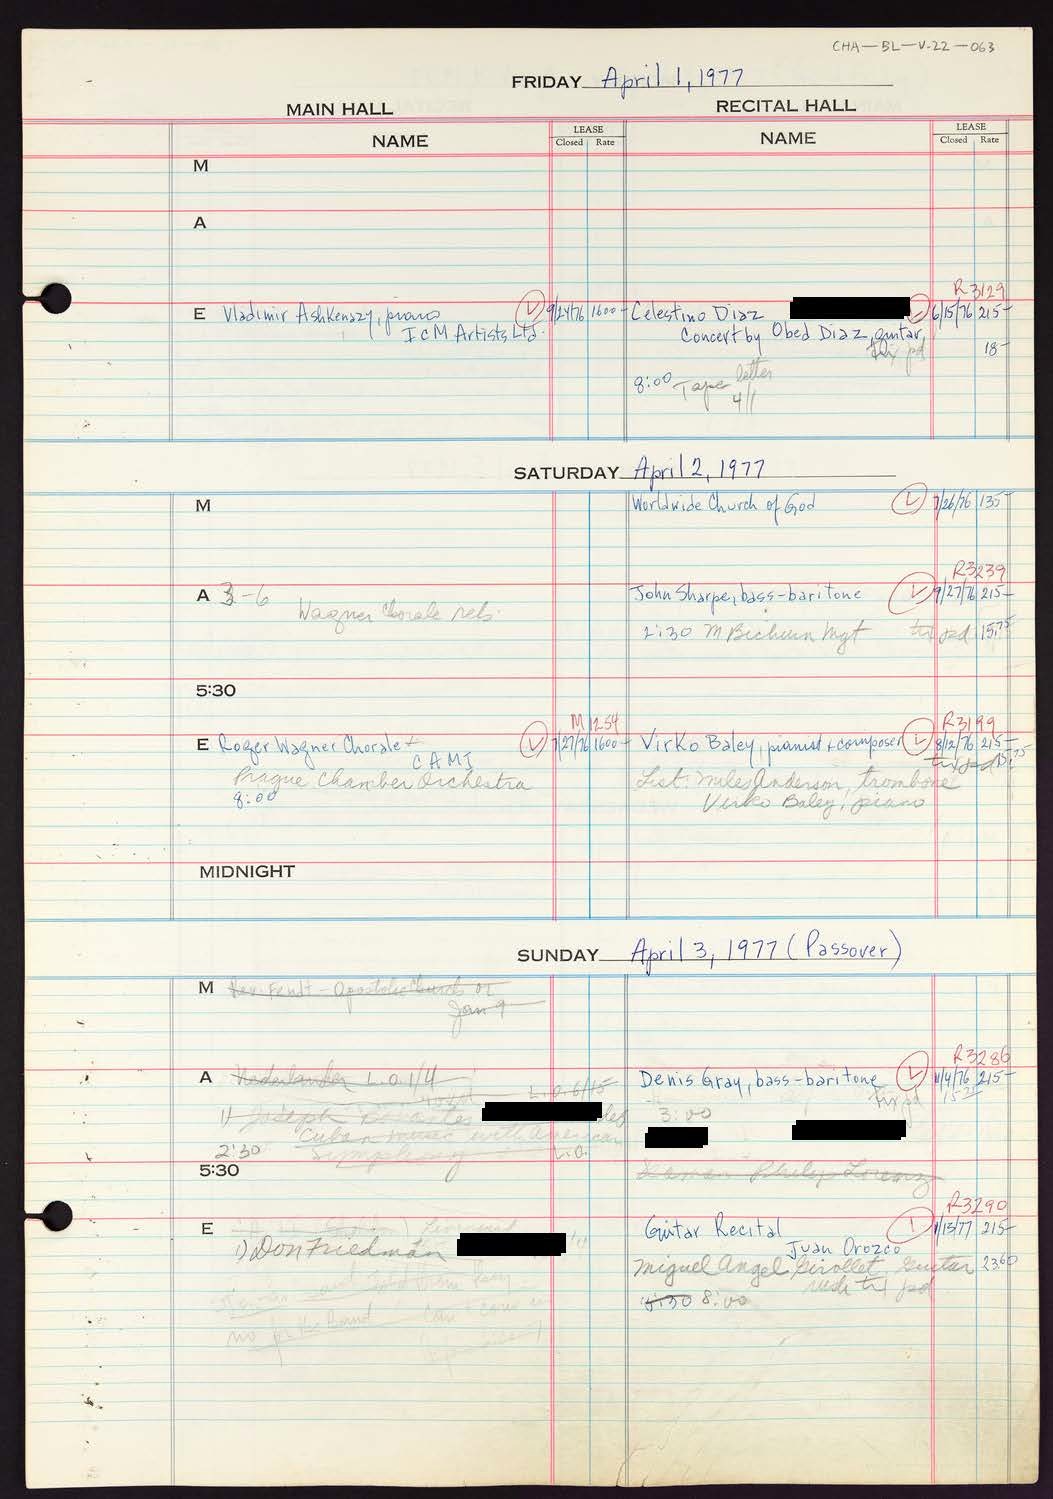 CHA-BL-V-22-063
FRIDAY April 1, 1977
MAIN HALL RECITAL HALL
NAME LEASE Closed Rate NAME LEASE Closed Rate
M
A
R3129
E Vladimir Ashkenazy, piano 9/24/76 1600- Celestino Diaz 6/15/76 215-
ICM Artists Ltd. Concert by Obed Diaz, guitar
pd 18-
8:00 Tape letter
4/1
SATURDAY April 2, 1977
M Worldwide Church of God 7/26/76 135-
R3239
A 3-6 John Sharpe, bass-baritone 9/27/76 215-
Wagner Chorale reh.
2:30 M Bichurin Mgt pd 15.75
5:30
M1254 R3199
E Roger Wagner Chorale + 7/27/76 1600- Virko Baley, pianist + composer 8/12/76 215-
CAMI pd 15.75
Prague Chamber Orchestra List: Miles Anderson, trombone
8:00 Virko Baley, piano
MIDNIGHT
SUNDAY April 3, 1977 (Passover)
M Rev. Fendt - Apostolic Church
Jan 9
R3286
A Nederlander L.O. 1/4 Denis Gray, bass-baritone 11/4/76 215-
L.O. 6/15 pd
1) Joseph 3:00
Cuban music with American
2:30 Symphony L.O.
5:30 Seaman Philip Lorenz
R3290
E Guitar Recital 1/13/77 215-
1) Don Friedman Juan Orozco
Miguel Angel Girollet, Guitar 23.60
pd
8:00
no for the Band